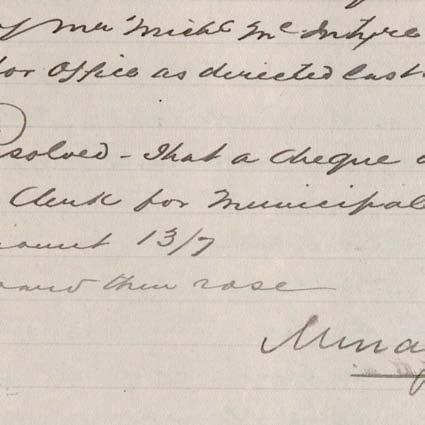 of Mr Michl McIntyre
for Office as directed last
Resolved - That a Cheque
Clerk for Municipal
amount 13/7
Board then rose